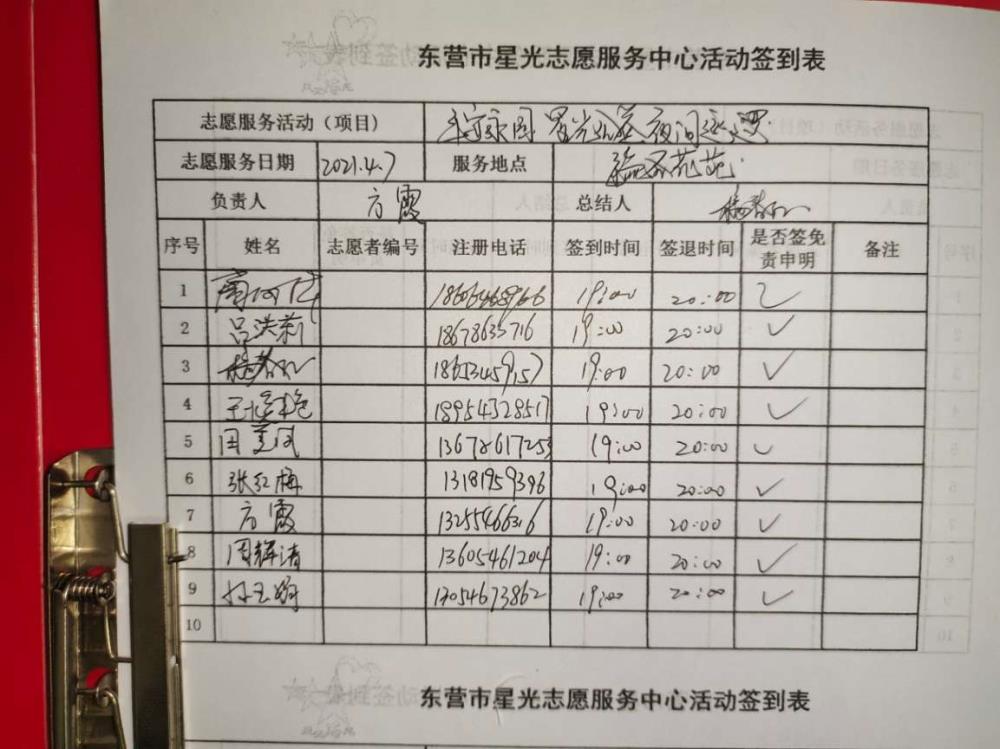 东营市星光志愿服务中心活动签到表
志愿服务活动（项目） 星光公益夜间巡逻
志愿服务日期 2021.4.7 服务地点
负责人 方霞 总结人
序号 姓名 志愿者编号 注册电话 签到时间 签退时间 是否签免责申明 备注
1 18606468966 19:00 20:00 ✓
2 吕洪莉 18678635716 19:00 20:00 ✓
3 18653459157 19:00 20:00 ✓
4 18954328517 19:00 20:00 ✓
5 13678617253 19:00 20:00 ✓
6 张红梅 13181959396 19:00 20:00 ✓
7 方霞 13255466316 19:00 20:00 ✓
8 周辉清 13605461204 19:00 20:00 ✓
9 13054673862 19:00 20:00 ✓
10
东营市星光志愿服务中心活动签到表